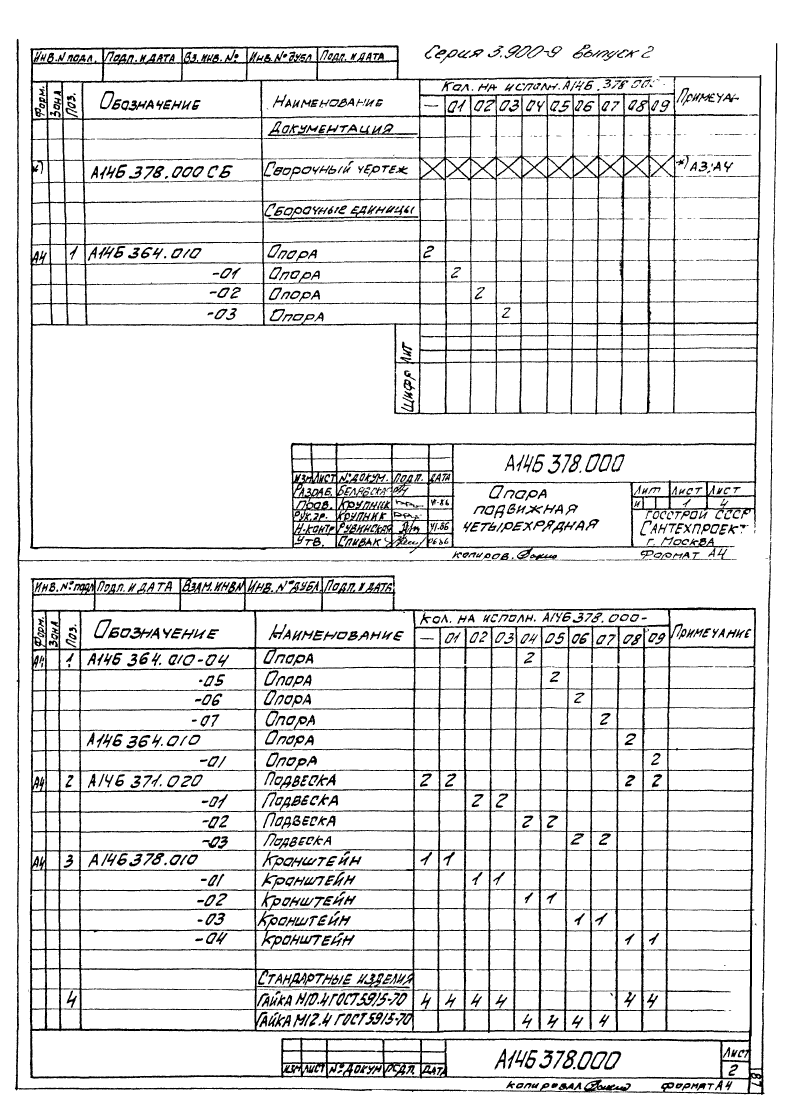 Серия 3.900-9 Выпуск 2
Инв.N подл. Подп. и дата Вз. инв. № Инв.№ дубл Подп. и дата
Форм. Зона Поз. Обозначение Наименование Кол. на исполн. А14Б 378.00 Примеча-
— 01 02 03 04 05 06 07 08 09
Документация
*) А14Б 378.000 СБ Сборочный чертеж *) А3;А4
Сборочные единицы
А4 1 А14Б 364.010 Опора 2
-01 Опора 2
-02 Опора 2
-03 Опора 2
Шифр Лит
А14Б 378.000
Изм Лист № докум. Подп. Дата
Разраб.
Пров. Крупник
Рук.гр. Крупник
Н.контр Рувинская VI-86
Утв. Спивак 06.86
Опора
подвижная
четырехрядная
Лит Лист Лист
И 1 4
Госстрой СССР
Сантехпроект
г. Москва
Копиров. Формат А4
Инв.№ подл Подп. и дата Взам. инв N Инв. № дубл Подп. и дата
Форм. Зона Поз. Обозначение Наименование Кол. на исполн. А14Б 378.000- Примечание
— 01 02 03 04 05 06 07 08 09
А4 1 А14Б 364.010-04 Опора 2
-05 Опора 2
-06 Опора 2
-07 Опора 2
А14Б 364.010 Опора 2
-01 Опора 2
А4 2 А14Б 371.020 Подвеска 2 2 2 2
-01 Подвеска 2 2
-02 Подвеска 2 2
-03 Подвеска 2 2
А4 3 А14Б 378.010 Кронштейн 1 1
-01 Кронштейн 1 1
-02 Кронштейн 1 1
-03 Кронштейн 1 1
-04 Кронштейн 1 1
Стандартные изделия
4 Гайка М10.4 ГОСТ 5915-70 4 4 4 4 4 4
Гайка М12.4 ГОСТ 5915-70 4 4 4 4
Изм Лист № докум Подп. Дата
А14Б 378.000
Лист
2
Копировал Формат А4
87